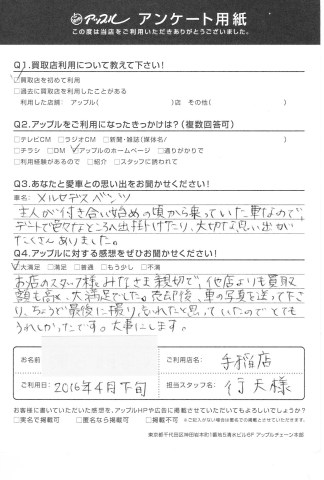 アップル アンケート用紙
この度は当店をご利用いただきありがとうございました。
Q1.買取店利用について教えて下さい!
☑買取店を初めて利用
□過去に買取店を利用したことがある
利用した店舗: アップル( )店 その他( )
Q2.アップルをご利用になったきっかけは?(複数回答可)
□テレビCM □ラジオCM □新聞・雑誌(媒体名/ )
□チラシ □DM ☑アップルのホームページ □通りがかりで
□利用経験があるので □紹介 □スタッフに誘われて
Q3.あなたと愛車との思い出をお聞かせください!
車名: メルセデスベンツ
主人が付き合い始めの頃から乗っていた車なので、
デートで色々なところへ出掛けたり、大切な思い出が
たくさんありました。
Q4.アップルに対する感想をぜひお聞かせください!
☑大満足 □満足 □普通 □もう少し □不満
お店のスタッフ様みなさま親切で、他店よりも買取
額も高く、大満足でした。売却後、車の写真を送って下さ
り、ちょうど最後に撮り忘れたと思っていたのでとても
うれしかったです。大事にします。
お名前
ご利用店名: 手稲店
ご利用日: 2016年4月下旬
担当スタッフ名: 行天様
お客様に書いていただいた感想を、アップルHPや広告に掲載させていただいてもよろしいでしょうか?
□実名で掲載可 □匿名なら掲載可 □掲載不可 ※ご記入がない場合は匿名での掲載とさせていただきます。
東京都千代田区神田岩本町1番地5清水ビル6F アップルチェーン本部